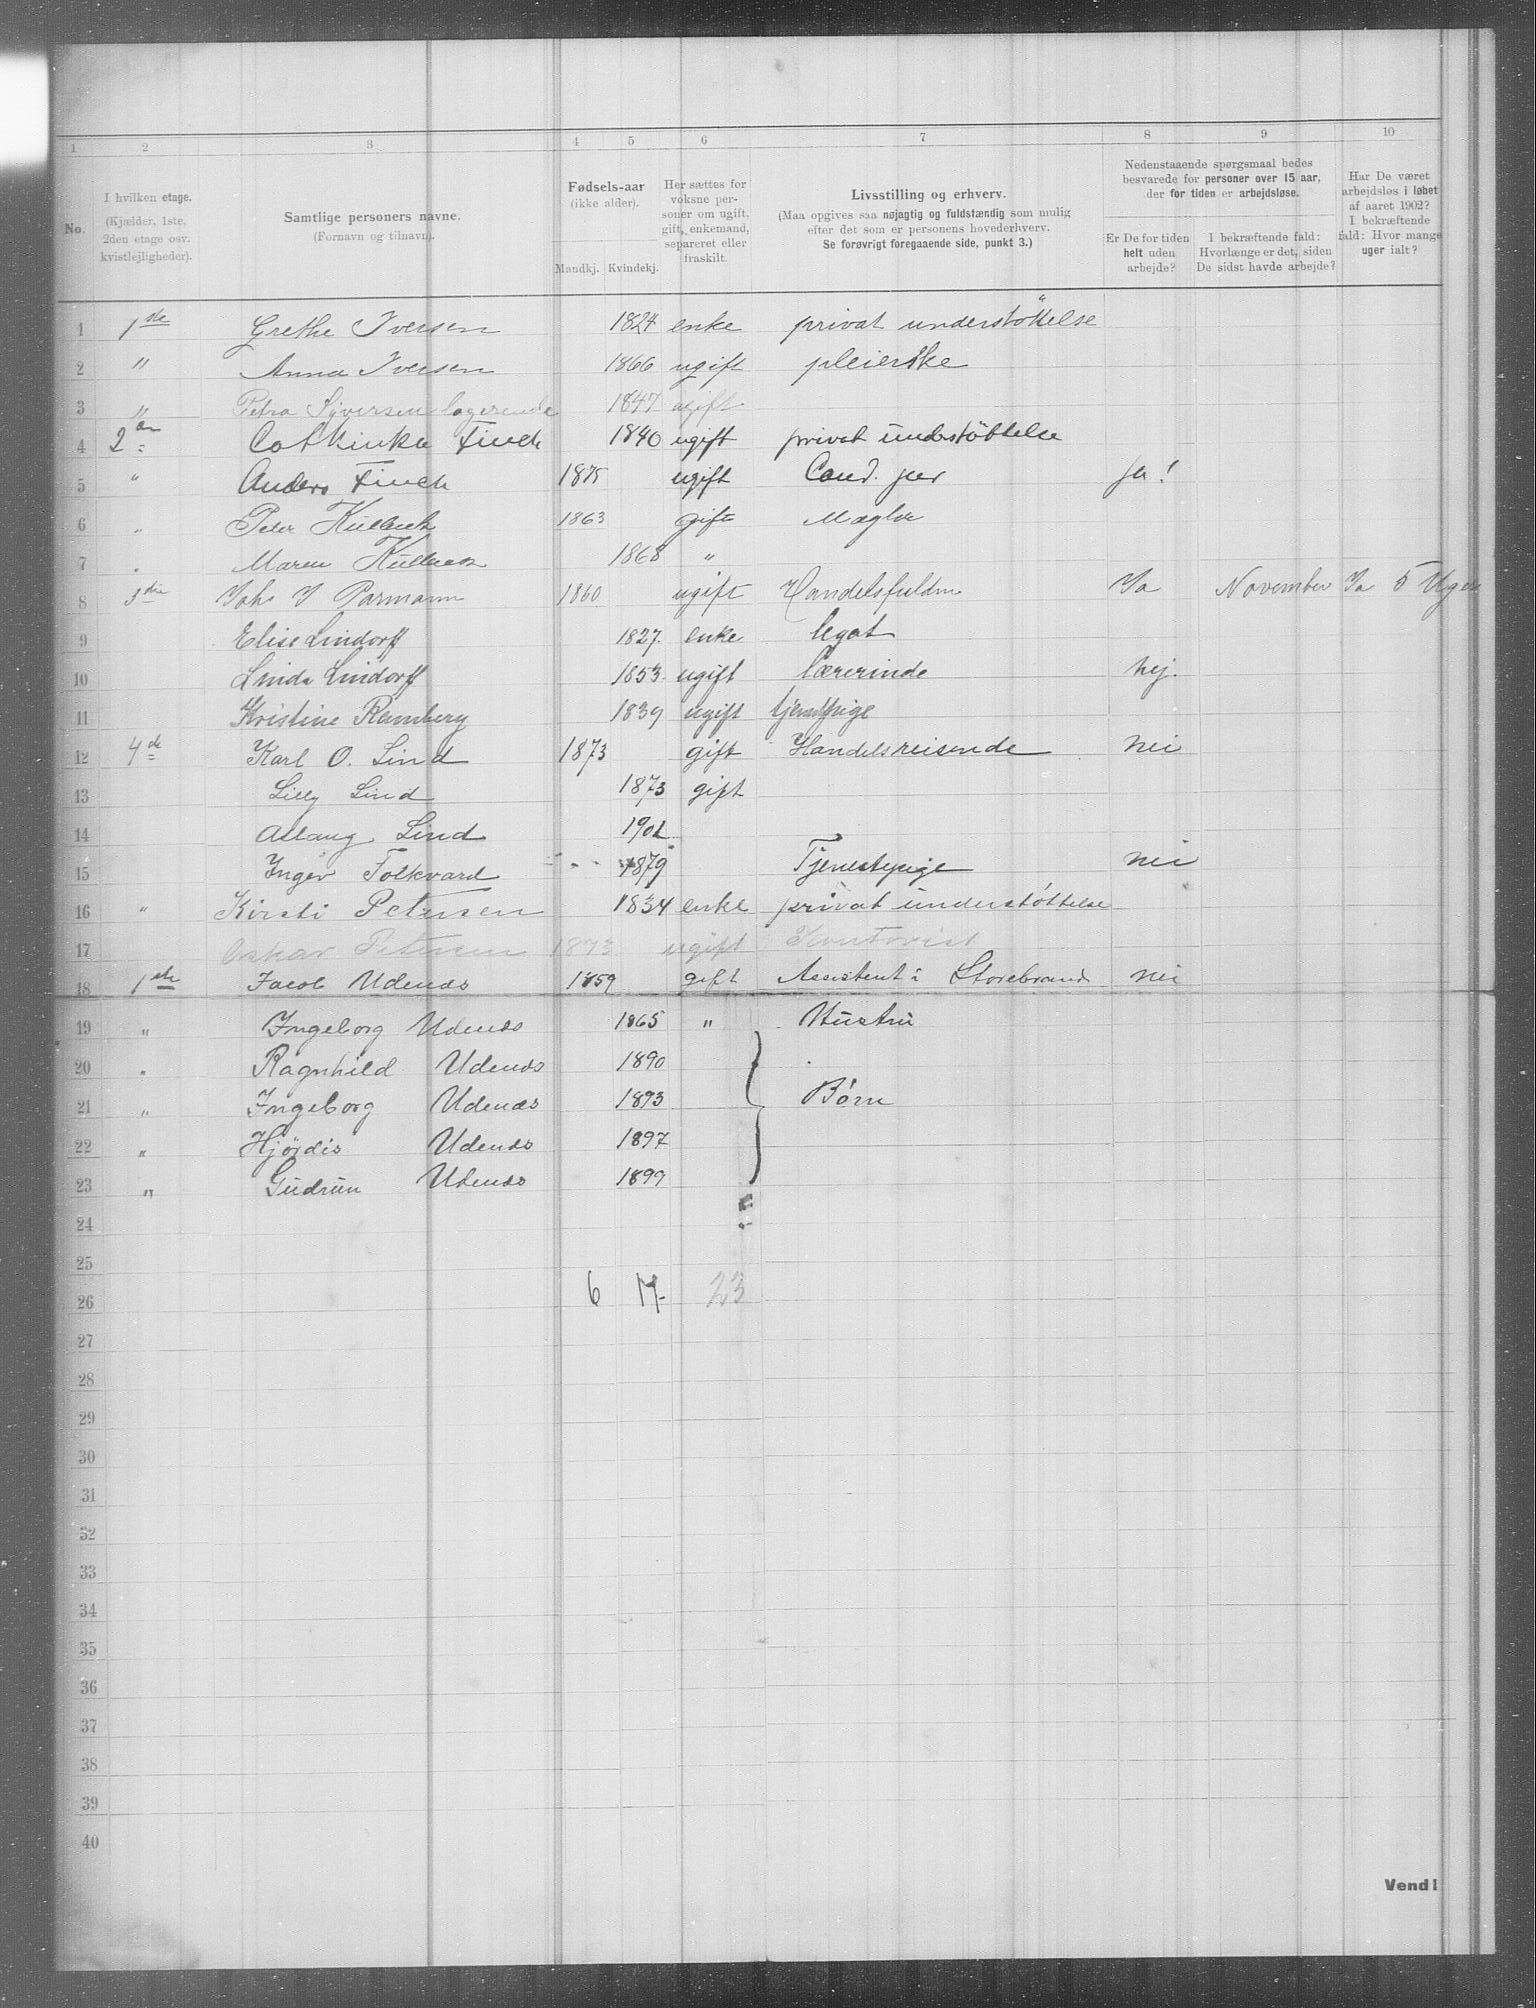 1 2 3 4 5 6 7 8 9 10
No.
I hvilken etage.
(Kjælder, 1ste,
2den etage osv.
kvistlejligheder).
Samtlige personers navne.
(Fornavn og tilnavn).
Fødsels-aar
(ikke alder).
Mandkj. Kvindekj.
Her sættes for
voksne per-
soner om ugift,
gift, enkemand,
separeret eller
fraskilt.
Livsstilling og erhverv.
(Maa opgives saa nøjagtig og fuldstændig som mulig
efter det som er personens hovederhverv.
Se forøvrigt foregaaende side, punkt 3.)
Nedenstaaende spørgsmaal bedes
besvarede for personer over 15 aar,
der for tiden er arbejdsløse.
Er De for tiden
helt uden
arbejde?
I bekræftende fald:
Hvorlænge er det, siden
De sidst havde arbejde?
Har De været
arbejdsløs i løbet
af aaret 1902?
I bekræftende
fald: Hvor mange
uger ialt?
1 1ste Grethe Iversen 1824 enke privat understöttelse
2 " Anna Iversen 1866 ugift pleierske
3 " Petra Syversen logerende 1847 ugift
4 2 Cathinka Finck 1840 ugift privat understöttelse
5 " Anders Finck 1875 ugift Cand. jur Ja!
6 " Peter 1863 gift Mægler
7 " Maren 1868 "
8 3die Johs J Parmann 1860 ugift Handelsfuldm Ja November Ja 5 Uger
9 Elise Lindorff 1827 enke legat
10 Linda Lindorff 1853 ugift Lærerinde nej.
11 Kristine Ramberg 1839 ugift tjenestpige
12 4de Karl O. Lind 1873 gift Handelsreisende nei
13 Lilly Lind 1873 gift
14 Aslaug Lind 1902
15 Inger Folkvard 1879 Tjenestepige nei
16 " Kirsti Petersen 1834 enke privat understöttelse
17 Oskar Petersen 1873 ugift Kontorist
18 1ste Jacob Udenæs 1859 gift Assistent i Storebrand nei
19 " Ingeborg Udenæs 1865 " Hustru
20 " Ragnhild Udenæs 1890
21 " Ingeborg Udenæs 1893 Børn
22 " Hjørdis Udenæs 1897
23 " Gudrun Udenæs 1899
24
25
26 6 17 23
27
28
29
30
31
32
33
34
35
36
37
38
39
40
Vend!